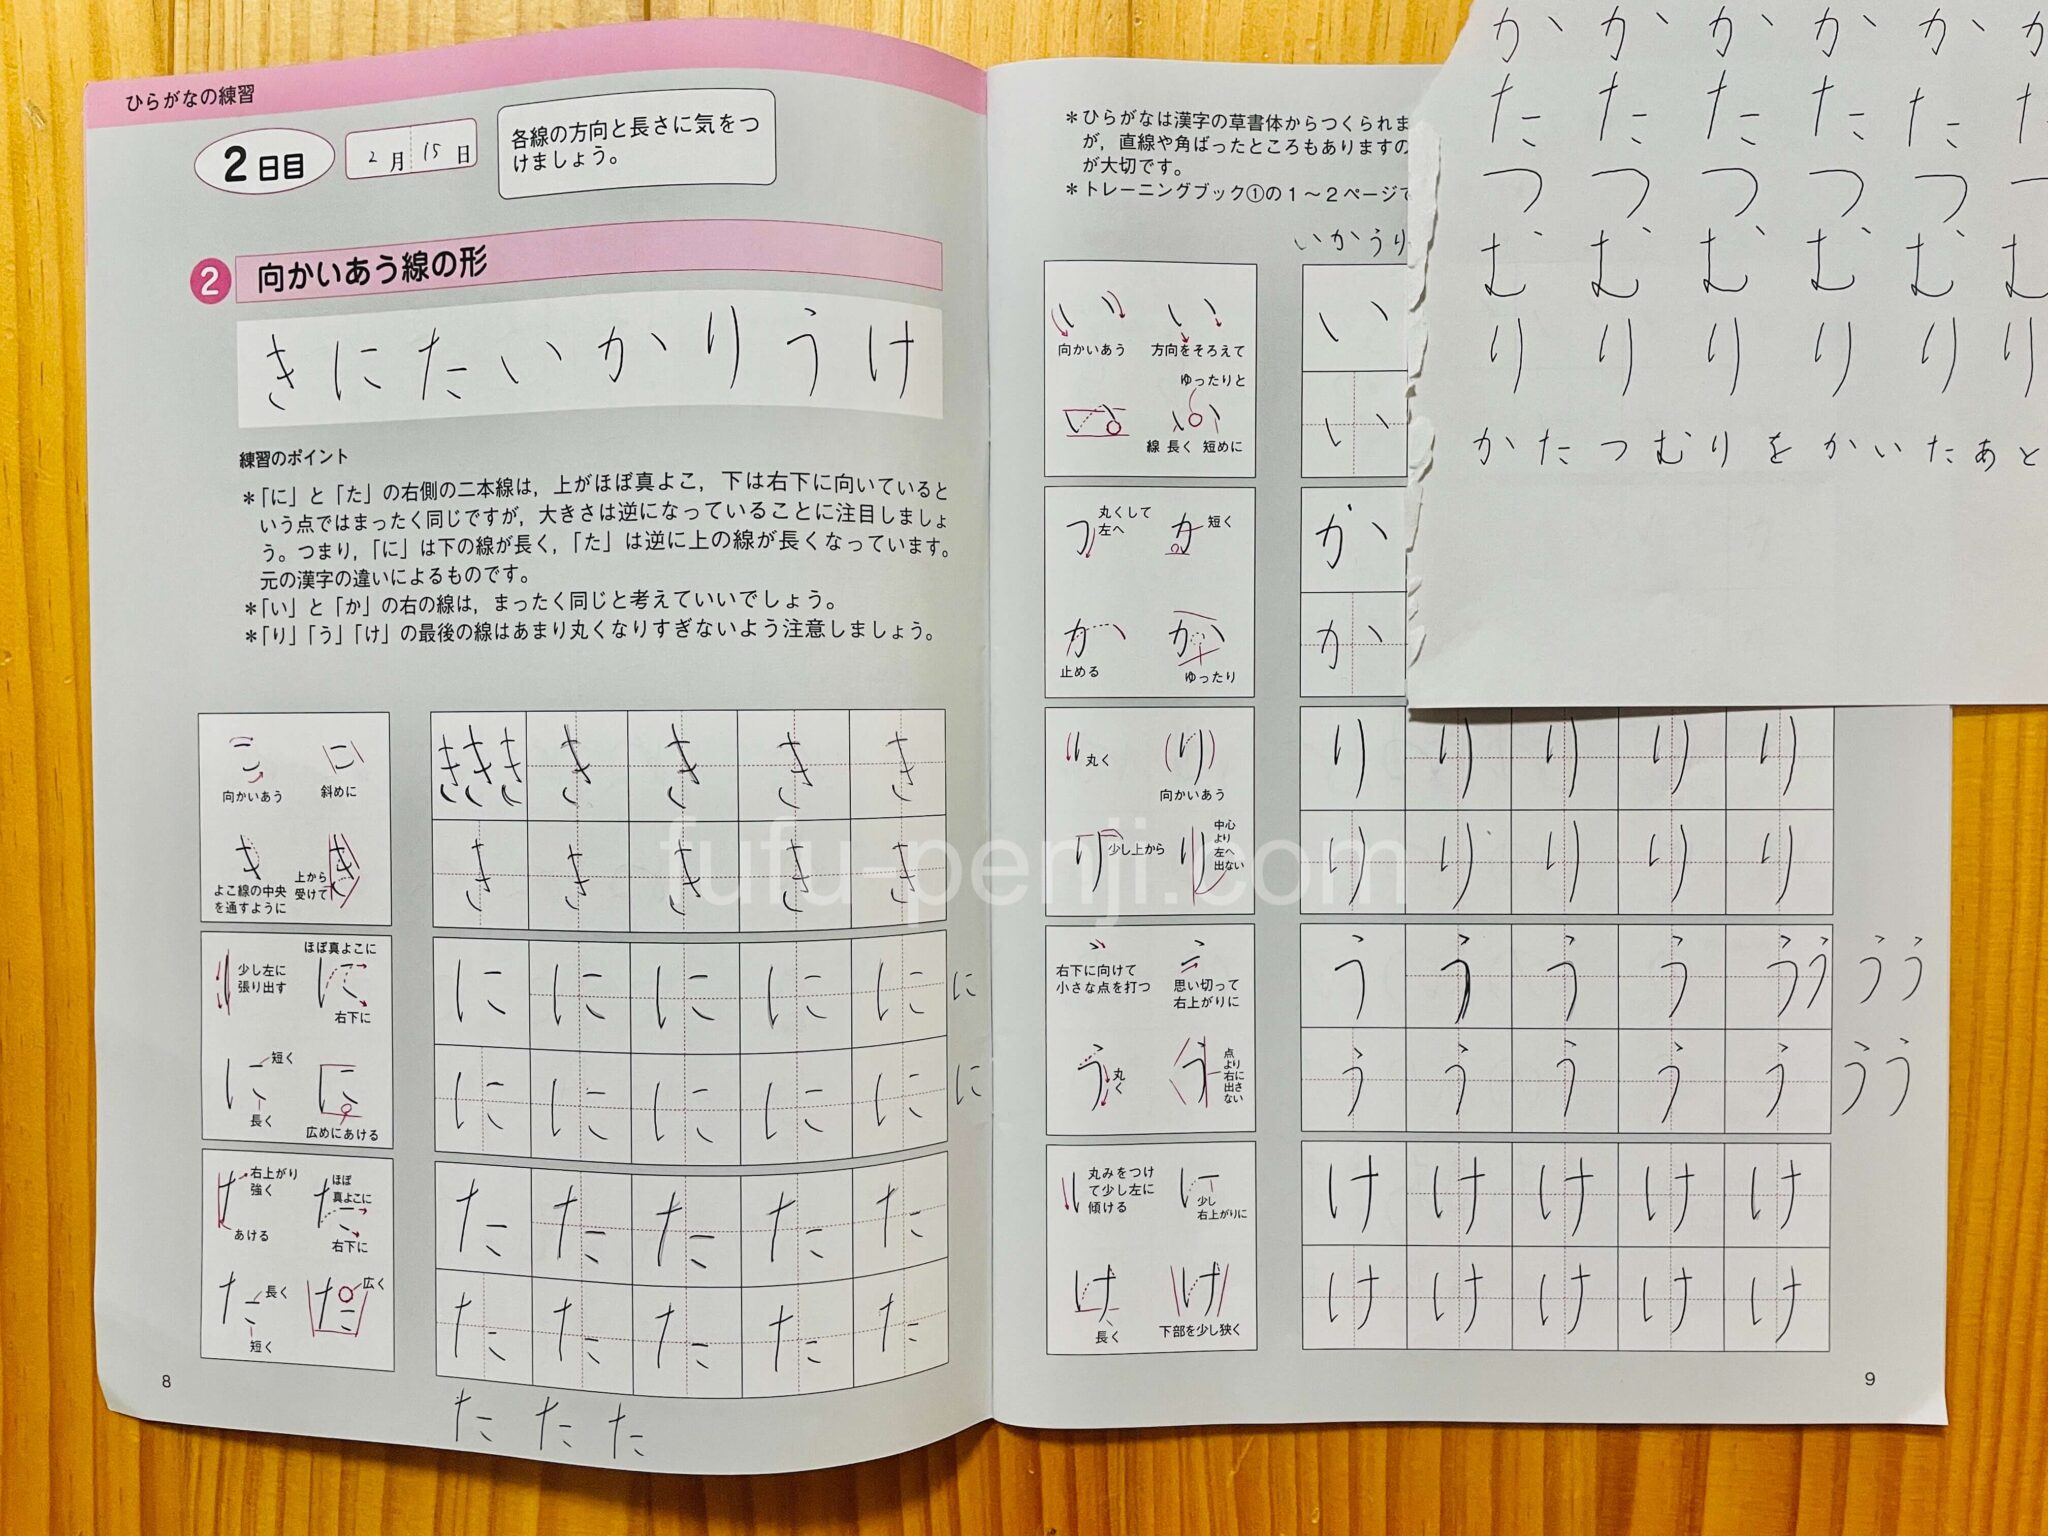 ひらがなの練習
2日目
2月15日
各線の方向と長さに気をつ
けましょう。
2 向かいあう線の形
きにたいかりうけ
練習のポイント
＊「に」と「た」の右側の二本線は，上がほぼ真よこ，下は右下に向いていると
いう点ではまったく同じですが，大きさは逆になっていることに注目しましょ
う。つまり，「に」は下の線が長く，「た」は逆に上の線が長くなっています。
元の漢字の違いによるものです。
＊「い」と「か」の右の線は，まったく同じと考えていいでしょう。
＊「り」「う」「け」の最後の線はあまり丸くなりすぎないよう注意しましょう。
向かいあう
斜めに
よこ線の中央
を通すように
上から
受けて
き き き き き き き
き き き き き
少し左に
張り出す
ほぼ真よこに
右下に
短く
長く
広めにあける
に に に に に に
に に に に に に
右上がり
強く
あける
ほぼ
真よこに
右下に
長く
短く
広く
た た た た た
た た た た た
た た た
8
＊ひらがなは漢字の草書体からつくられま
が，直線や角ばったところもありますの
が大切です。
＊トレーニングブック①の1～2ページで
いかうり
向かいあう
方向をそろえて
ゆったりと
線 長く 短めに
い
い
丸くして
左へ
短く
止める
ゆったり
か
か
丸く
向かいあう
少し上から
中心
より
左へ
出ない
り り り り り
り り り り り
右下に向けて
小さな点を打つ
思い切って
右上がりに
丸く
点
より
右に
出さ
ない
う う う う う う う う
う う う う う う う
丸みをつけ
て少し左に
傾ける
少し
右上がりに
長く
下部を少し狭く
け け け け け
け け け け け
9
か か か か か か
た た た た た た
つ つ つ つ つ つ
む む む む む む
り り り り り り
かたつむりをかいたあと
fufu-penji.com